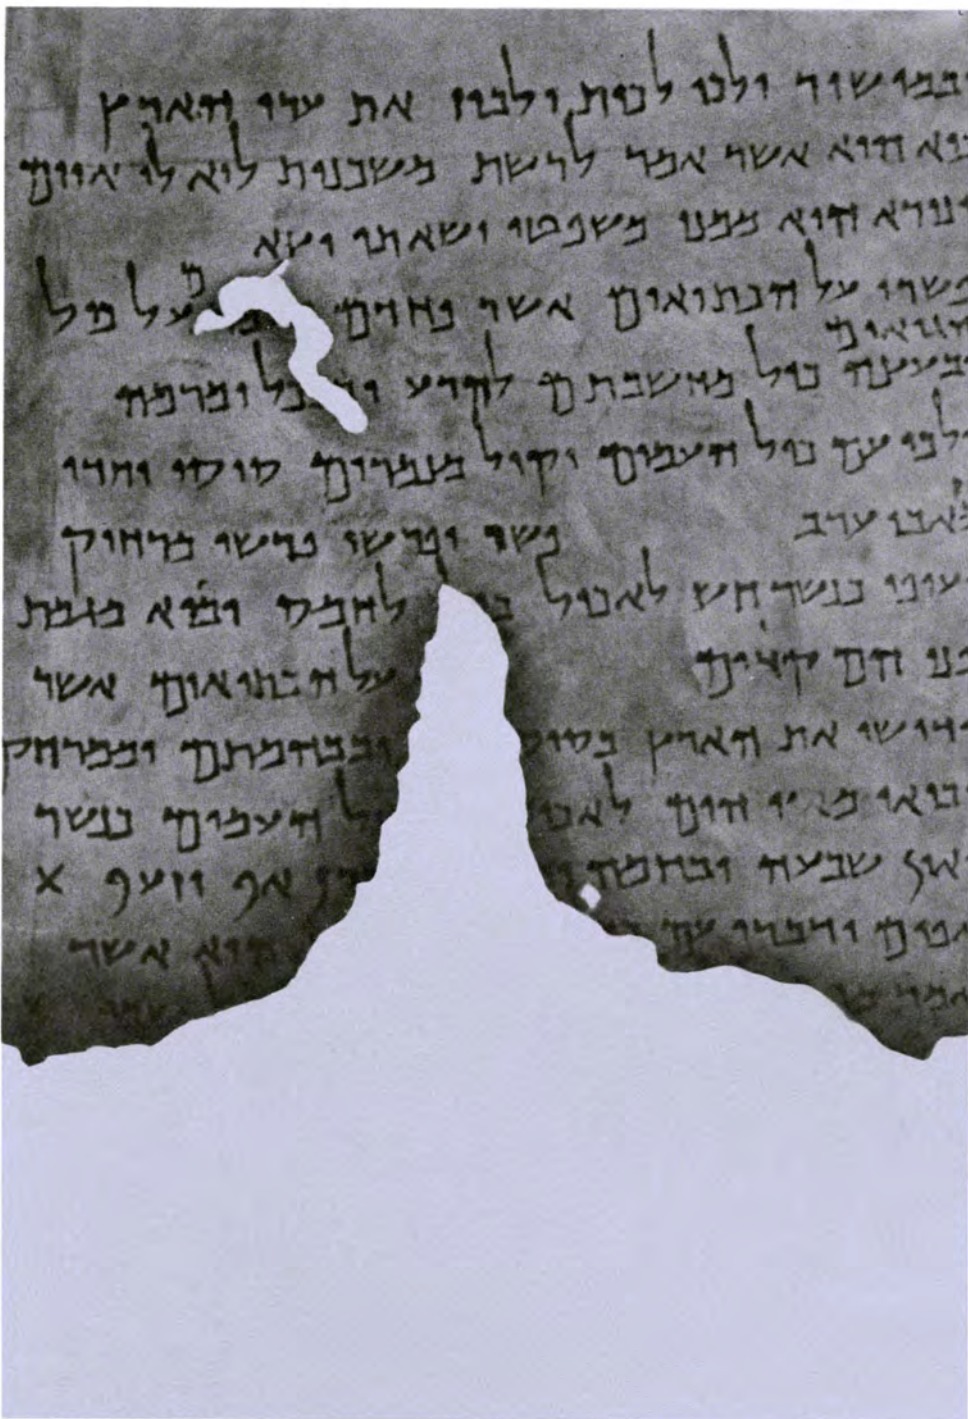 ובמישור ילכו לכות ולבוז את ערי הארץ
כיא הוא אשר אמר לרשת משכנות לוא לו איום
ונורא הוא ממנו משפטו ושאתו יצא
פשרו על הכתיאים אשר פחדם על כול
הגואים
ובעצה כול מחשבתם להרע ומרמה
ילכו עם כול העמים וקול מנמרים סוסו וחדו
מזאבי ערב פשו ופרשו פרשו מרחוק
יעופו כנשר חש לאכול לחמס יבוא מגמת
פניהם קדים על הכתיאים אשר
ידושו את הארץ ובבהמתם וממרחק
יבואו מאיי הים העמים כנשר
ואין שבעה ובחמה אף וזעף X
אפים ידברו עם הוא אשר
אמר